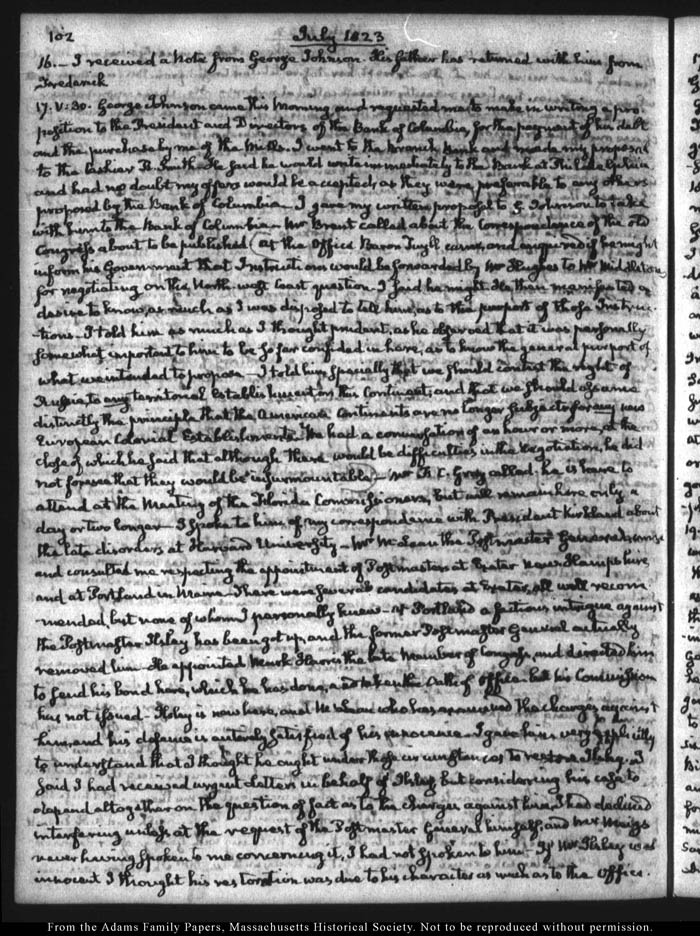 102
July 1823
16. — I received a Note from George Johnson. His father has returned with him from
Frederick
17. V: 30. George Johnson came this Morning and requested me to make in writing a pro-
position to the President and Directors of the Bank of Columbia, for the payment of his debt
and the purchase by me of the Mills. I went to the Branch Bank and made my proposal
to the Cashier R. Smith. He said he would write immediately to the Bank at Philadelphia
and had no doubt my offers would be accepted, as they were preferable to any others
proposed by the Bank of Columbia. I gave my written proposal to G. Johnson to take
with him to the Bank of Columbia — Mr Brent called about the Correspondence of the old
Congress about to be published. At the Office Baron Tuyll came, and enquired if he might
inform his Government that Instructions would be forwarded by Mr Hughes to Mr Middleton
for negotiating on the North-west Coast question. I said he might. He then manifested a
desire to know, as much as I was disposed to tell him, as to the purport of those Instruc-
-tions. I told him as much as I thought prudent, as he observed that it was personally
somewhat important to him to be so far confided in here, as to know the general purport of
what we intended to propose. I told him specially that we should contest the right of
Russia to any territorial establishment on this Continent, and that we should assume
distinctly the principle that the American Continents are no longer subjects for any new
European Colonial Establishments. We had a conversation of an hour or more, at the
close of which he said that although there would be difficulties in the negotiation, he did
not foresee that they would be insurmountable — Mr F. C. Gray called. he is here to
attend at the Meeting of the Florida Commissioners, but will remain here only a
day or two longer — I spoke to him of my correspondence with President Kirkland about
the late disorders at Harvard University — Mr McLean the Postmaster General came
and consulted me respecting the appointment of Postmasters at Exeter New-Hampshire,
and at Portland in Maine. There were several candidates at Exeter, all well recom
mended, but none of whom I personally knew. At Portland a factious intrigue against
the Postmaster Ilsley has been got up, and the former Postmaster General actually
removed him. He appointed Mark Harris the late Member of Congress, and directed him
to send his bond here, which he has done, and taken the Oath of Office. but his Commission
has not issued. Ilsley is now here, and McLean who has examined the charges against
him, and his defence is entirely satisfied of his innocence. I gave him very explicitly
to understand that I thought he ought under those circumstances to restore Ilsley. I
said I had received urgent letters in behalf of Ilsley but considering his case to
depend altogether on the question of fact as to the charges against him, I had declined
interfering unless at the request of the Postmaster General himself, and Mr Meigs
never having spoken to me concerning it, I had not spoken to him. If Mr Ilsley was
innocent I thought his restoration was due to his character as much as to the Office.
From the Adams Family Papers, Massachusetts Historical Society. Not to be reproduced without permission.